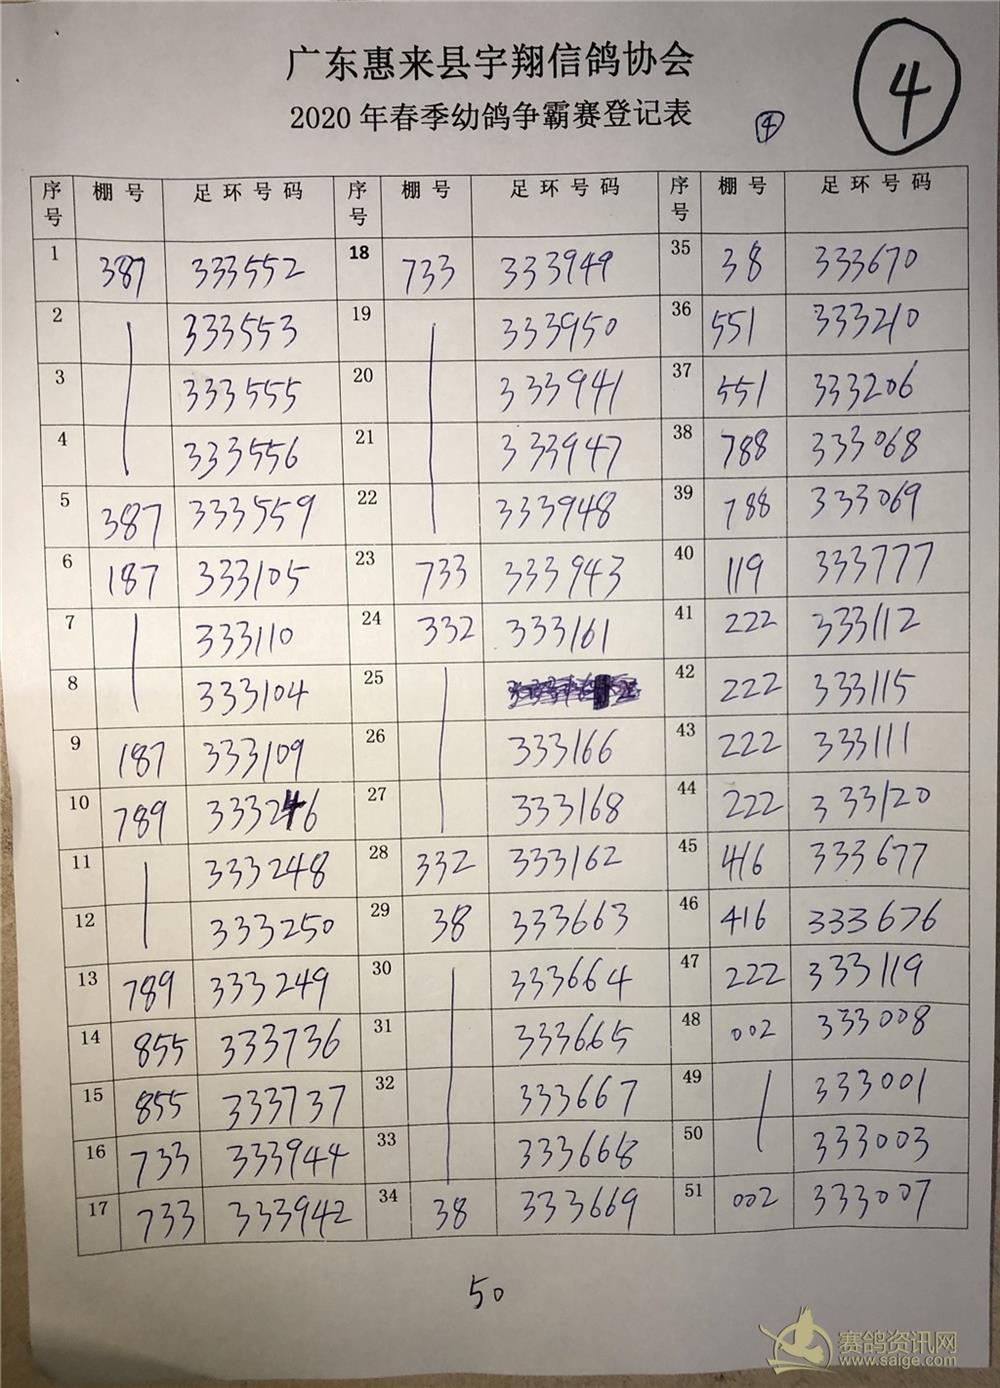 广东惠来县宇翔信鸽协会
4
2020年春季幼鸽争霸赛登记表
4
序号 棚号 足环号码 序号 棚号 足环号码 序号 棚号 足环号码
1 387 333552 18 733 333949 35 38 333670
2 333553 19 333950 36 551 333210
3 333555 20 333941 37 551 333206
4 333556 21 333947 38 788 333068
5 387 333559 22 333948 39 788 333069
6 187 333105 23 733 333943 40 119 333777
7 333110 24 332 333161 41 222 333112
8 333104 25 42 222 333115
9 187 333109 26 333166 43 222 333111
10 789 333246 27 333168 44 222 333120
11 333248 28 332 333162 45 416 333677
12 333250 29 38 333663 46 416 333676
13 789 333249 30 333664 47 222 333119
14 855 333736 31 333665 48 002 333008
15 855 333737 32 333667 49 333001
16 733 333944 33 333668 50 333003
17 733 333942 34 38 333669 51 002 333007
50
赛鸽资讯网
www.saige.com